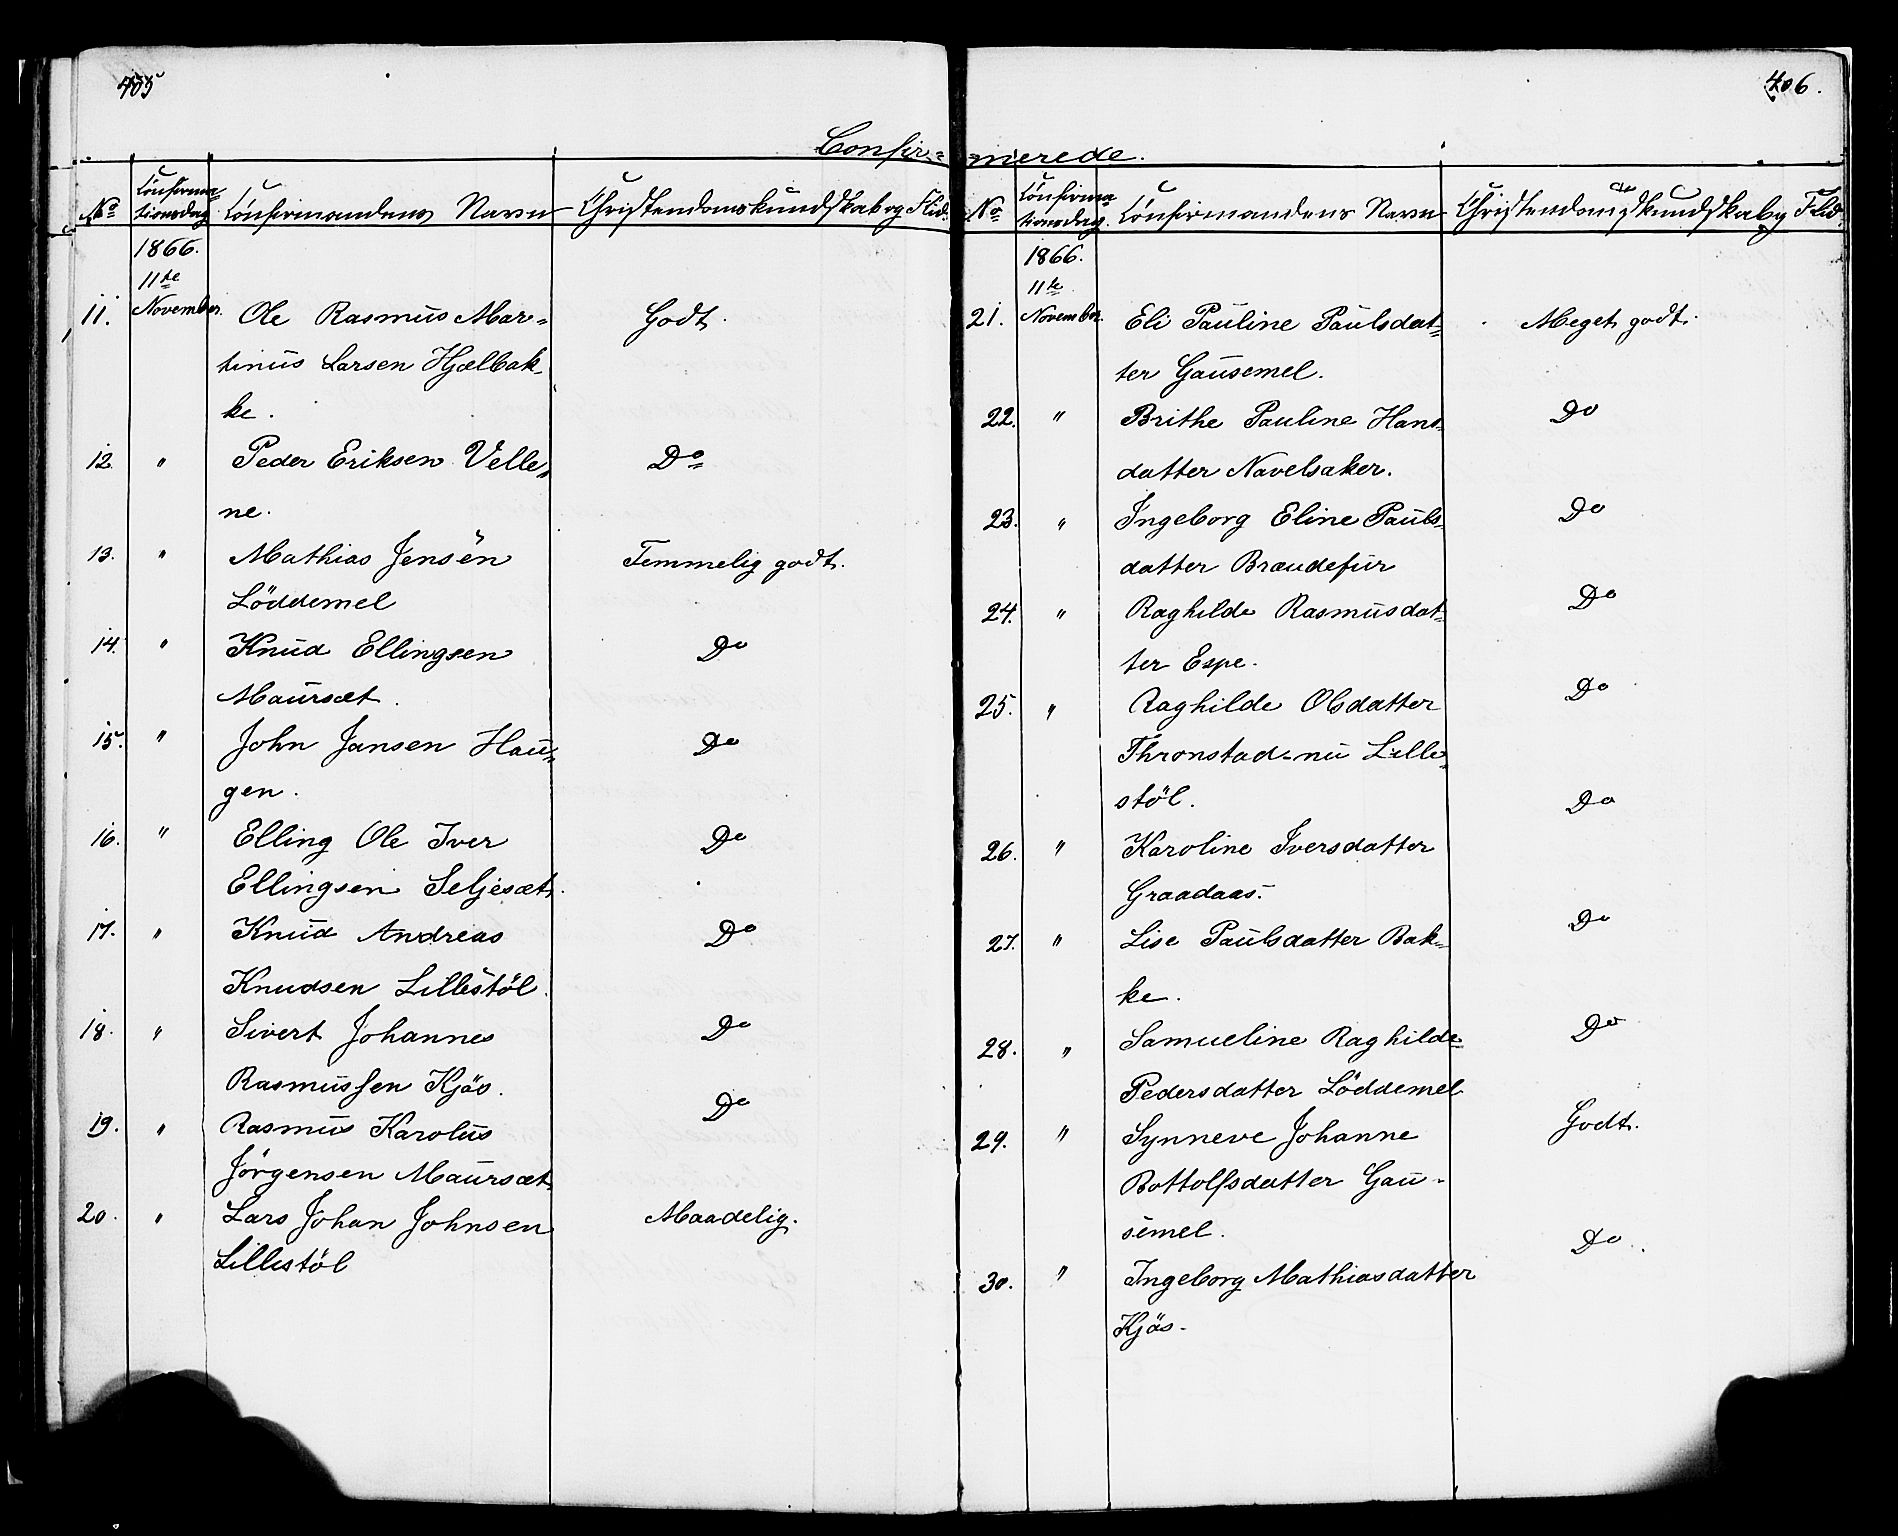 405
Confir-
No Confirma-
tionsdag Confirmandens Navn Christendomskundskab og Flid.
1866.
11te
11. November. Ole Rasmus Mar- Godt.
tinus Larsen Hjælbak-
ke.
12. " Peder Eriksen Velle- Do
ne.
13. " Mathias Jensen Temmelig godt.
Löddemel
14. " Knud Ellingsen Do
Maursæt.
15. " John Jansen Hau- Do
gen.
16. " Elling Ole Iver Do
Ellingsen Seljesæt.
17. " Knud Andreas Do
Knudsen Lillestöl.
18. " Sivert Johannes Do
Rasmussen Kjös.
19. " Rasmus Karolus Do
Jörgensen Maursæt.
20. " Lars Johan Johnsen Maadelig.
Lillestöl
406.
-merede.
No Confirma-
tionsdag. Confirmandens Navn Christendomskundskab og Flid.
1866.
11te
21. November. Eli Pauline Paulsdat- Meget godt.
ter Gausemel.
22. " Brithe Pauline Hans- Do
datter Navelsaker.
23. " Ingeborg Eline Pauls- Do
datter Braudefur
24. " Raghilde Rasmusdat- Do
ter Espe.
25. " Raghilde Olsdatter Do
Thronstad-nu Lille-
stöl.
26. " Karoline Iversdatter Do
Graadaas.
27. " Lise Paulsdatter Bak- Do
ke.
28. " Samueline Raghilde Do
Pedersdatter Löddemel
29. " Synneve Johanne Godt.
Bottolfsdatter Gau-
semel.
30. " Ingeborg Mathiasdatter Do.
Kjös.